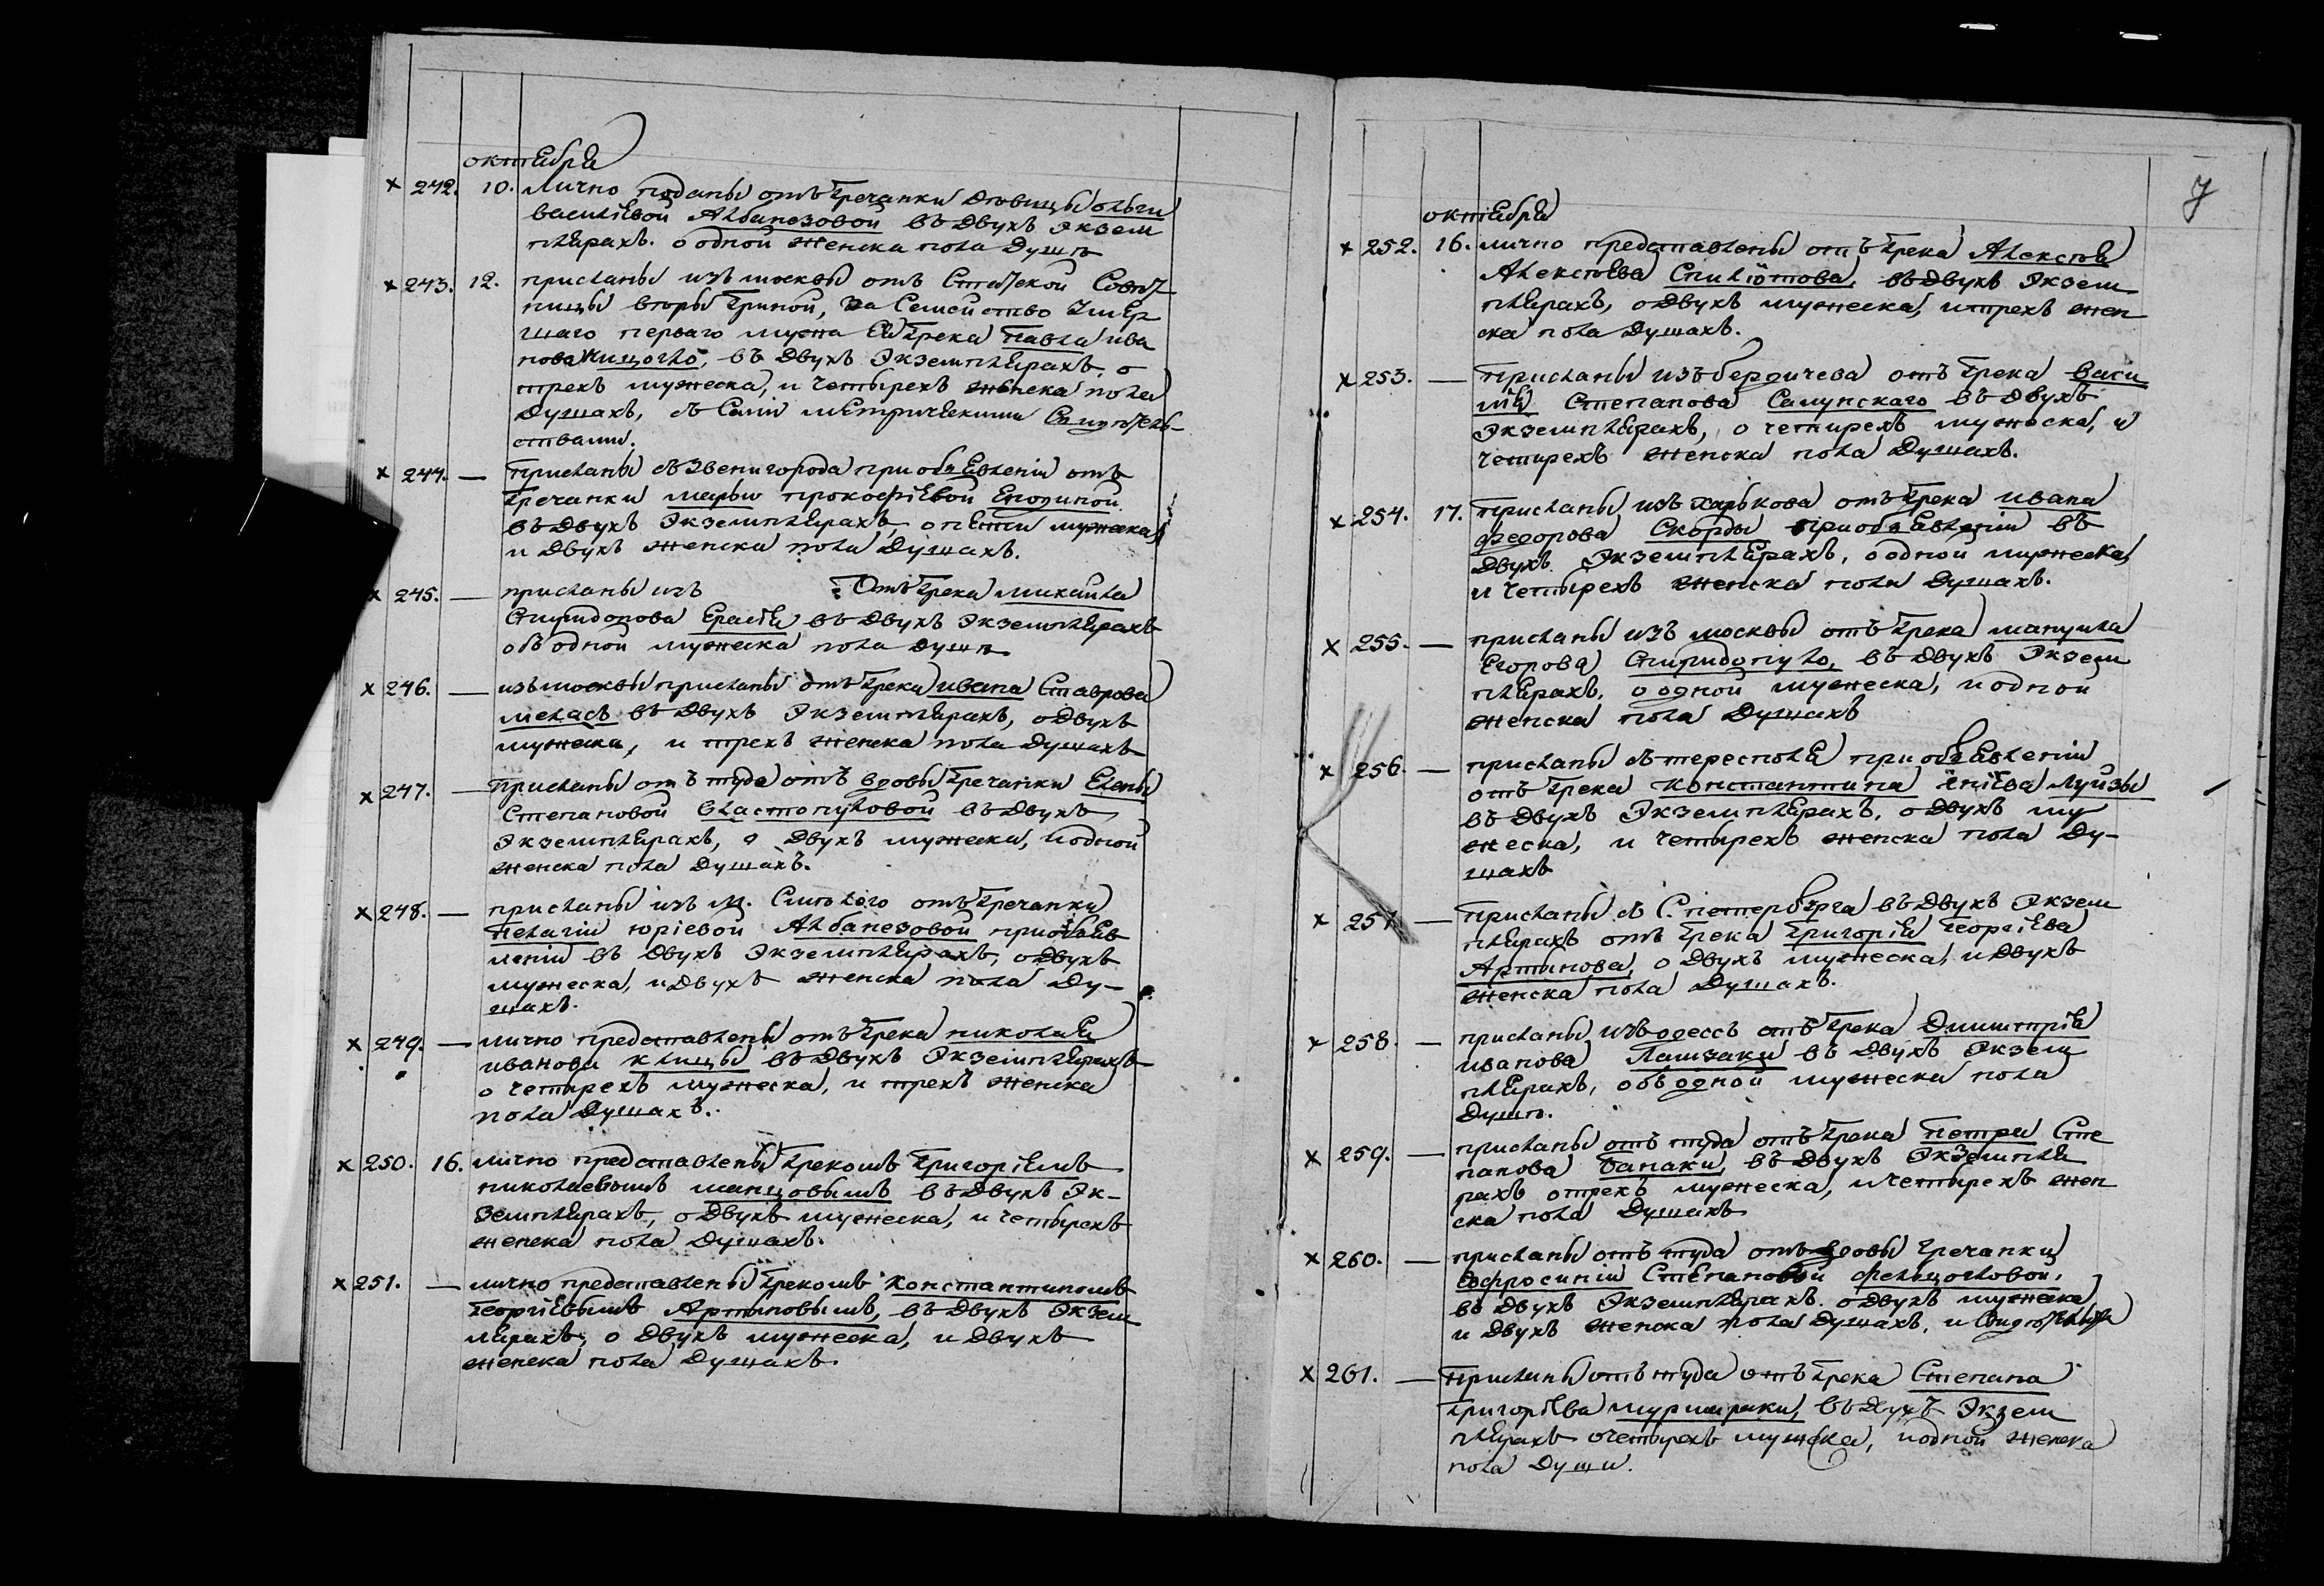 октября
× 242. 10. Лично поданы отъ Гречанки Девицы Ольги
Василіевой Албанезовой въ двухъ Экзем
плярахъ. о одной женска пола Душѣ
× 243. 12. присланы изъ москвы отъ Статской Совѣт
ницы вторы Гриной, за Семейство Умер
шаго перваго мужа Ея Грека Павла ива
нова въ двухъ Экземплярахъ, о
трехъ мужеска, и четырехъ женска пола
Душахъ, съ Семи метрическими Свидѣтель-
ствами.
× 244. — присланы съ Звенигорода при объявленіи отъ
Гречанки марьи прокофіевой
въ двухъ Экземплярахъ, о пяти мужеска
и двухъ женска пола Душахъ.
× 245. — присланы изъ Отъ Грека михаила
Спиридонова въ двухъ Экземплярахъ
объ одной мужеска пола душѣ
× 246. — изъ москвы присланы отъ Грека ивана Ставрова
меласъ въ двухъ Экземплярахъ, о двухъ
мужеска, и трехъ женска пола душахъ
× 247. — присланы отъ туда отъ вдовы Гречанки Елены
Степановой Властопуловой въ двухъ
Экземплярахъ, о двухъ мужеска, и одной
женска пола душахъ.
× 248. — присланы изъ м. Смилого отъ Гречанки
пелагіи юріевой Албанезовой при объяв
леніи въ двухъ Экземплярахъ, о двухъ
мужеска, и двухъ женска пола Ду-
шахъ.
× 249. — лично представлены отъ Грека николая
иванова клицы въ двухъ Экземплярахъ
о четырехъ мужеска, и трехъ женска
пола Душахъ.
× 250. 16. лично представлены Грекомъ Григоріемъ
николаевымъ манцовымъ въ двухъ Эк-
земплярахъ, о двухъ мужеска, и четырехъ
женска пола душахъ.
× 251. — лично представлены Грекомъ Константиномъ
Георгіевымъ Артиновымъ, въ двухъ Экзем
лярахъ, о двухъ мужеска, и двухъ
женска пола Душахъ.
7
октября
× 252. 16. лично представлены отъ Грека Алексея
Алексеева Спиліотова, въ двухъ Экзем
плярахъ, о двухъ мужеска, и трехъ жен
ска пола душахъ.
× 253. — присланы изъ бердичева отъ Грека Васи
лія Степанова Салунскаго въ двухъ
Экземплярахъ, о четырехъ мужеска, и
четырехъ женска пола Душахъ.
× 254. 17. присланы изъ харькова отъ Грека ивана
федорова Скорды при объявленіи въ
двухъ Экземплярахъ, о одной мужеска,
и четырехъ женска пола душахъ.
× 255. — присланы изъ москвы отъ Грека мануила
Егорова Спиридопуло, въ двухъ Экзем
плярахъ, о одной мужеска, и одной
женска пола Душахъ
× 256. — присланы съ тересполя при объявленіи
отъ Грека Константина Луизы
въ двухъ Экземплярахъ, о двухъ му
жеска, и четырехъ женска пола Ду-
шахъ
× 257. — присланы съ С. петербурга въ двухъ Экзем
плярахъ отъ Грека Григорія Георгіева
Артинова, о двухъ мужеска, и двухъ
женска пола Душахъ.
× 258. — присланы изъ одессъ отъ Грека Димитрія
иванова Памзаки въ двухъ Экзем
плярахъ, объ одной мужеска пола
Душѣ.
× 259. — присланы отъ туда отъ Грека петра Сте
панова Банаки, въ двухъ Экземпля
рахъ о трехъ мужеска, и четырехъ жен
ска пола Душахъ
× 260. — присланы отъ туда отъ вдовы Гречанки
Евфросиніи Степановой
въ двухъ Экземплярахъ о двухъ мужеска
и двухъ женска пола душахъ,
× 261. — присланы отъ туда отъ Грека Степана
Григоріева въ двухъ Экзем
плярахъ о четырехъ мужеска, и одной женска
пола Души.